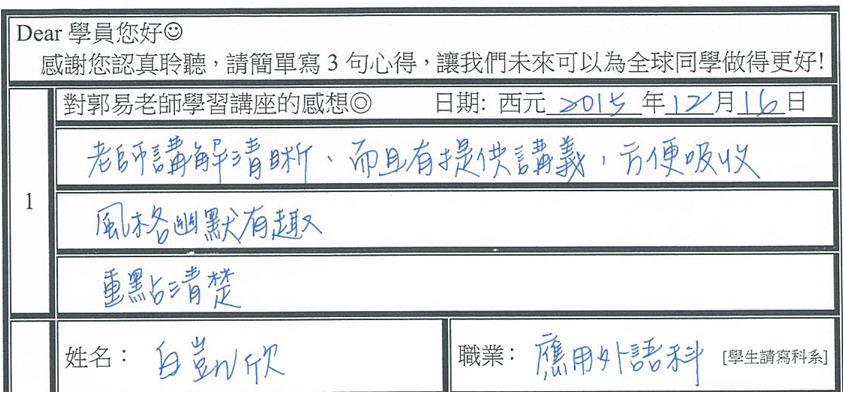 Dear 學員您好☺
感謝您認真聆聽，請簡單寫 3 句心得，讓我們未來可以為全球同學做得更好!
對郭易老師學習講座的感想◎ 日期: 西元 2015 年 12 月 16 日
1
老師講解清晰、而且有提供講義，方便吸收
風格幽默有趣
重點清楚
姓名： 白凱欣 職業： 應用外語科 [學生請寫科系]